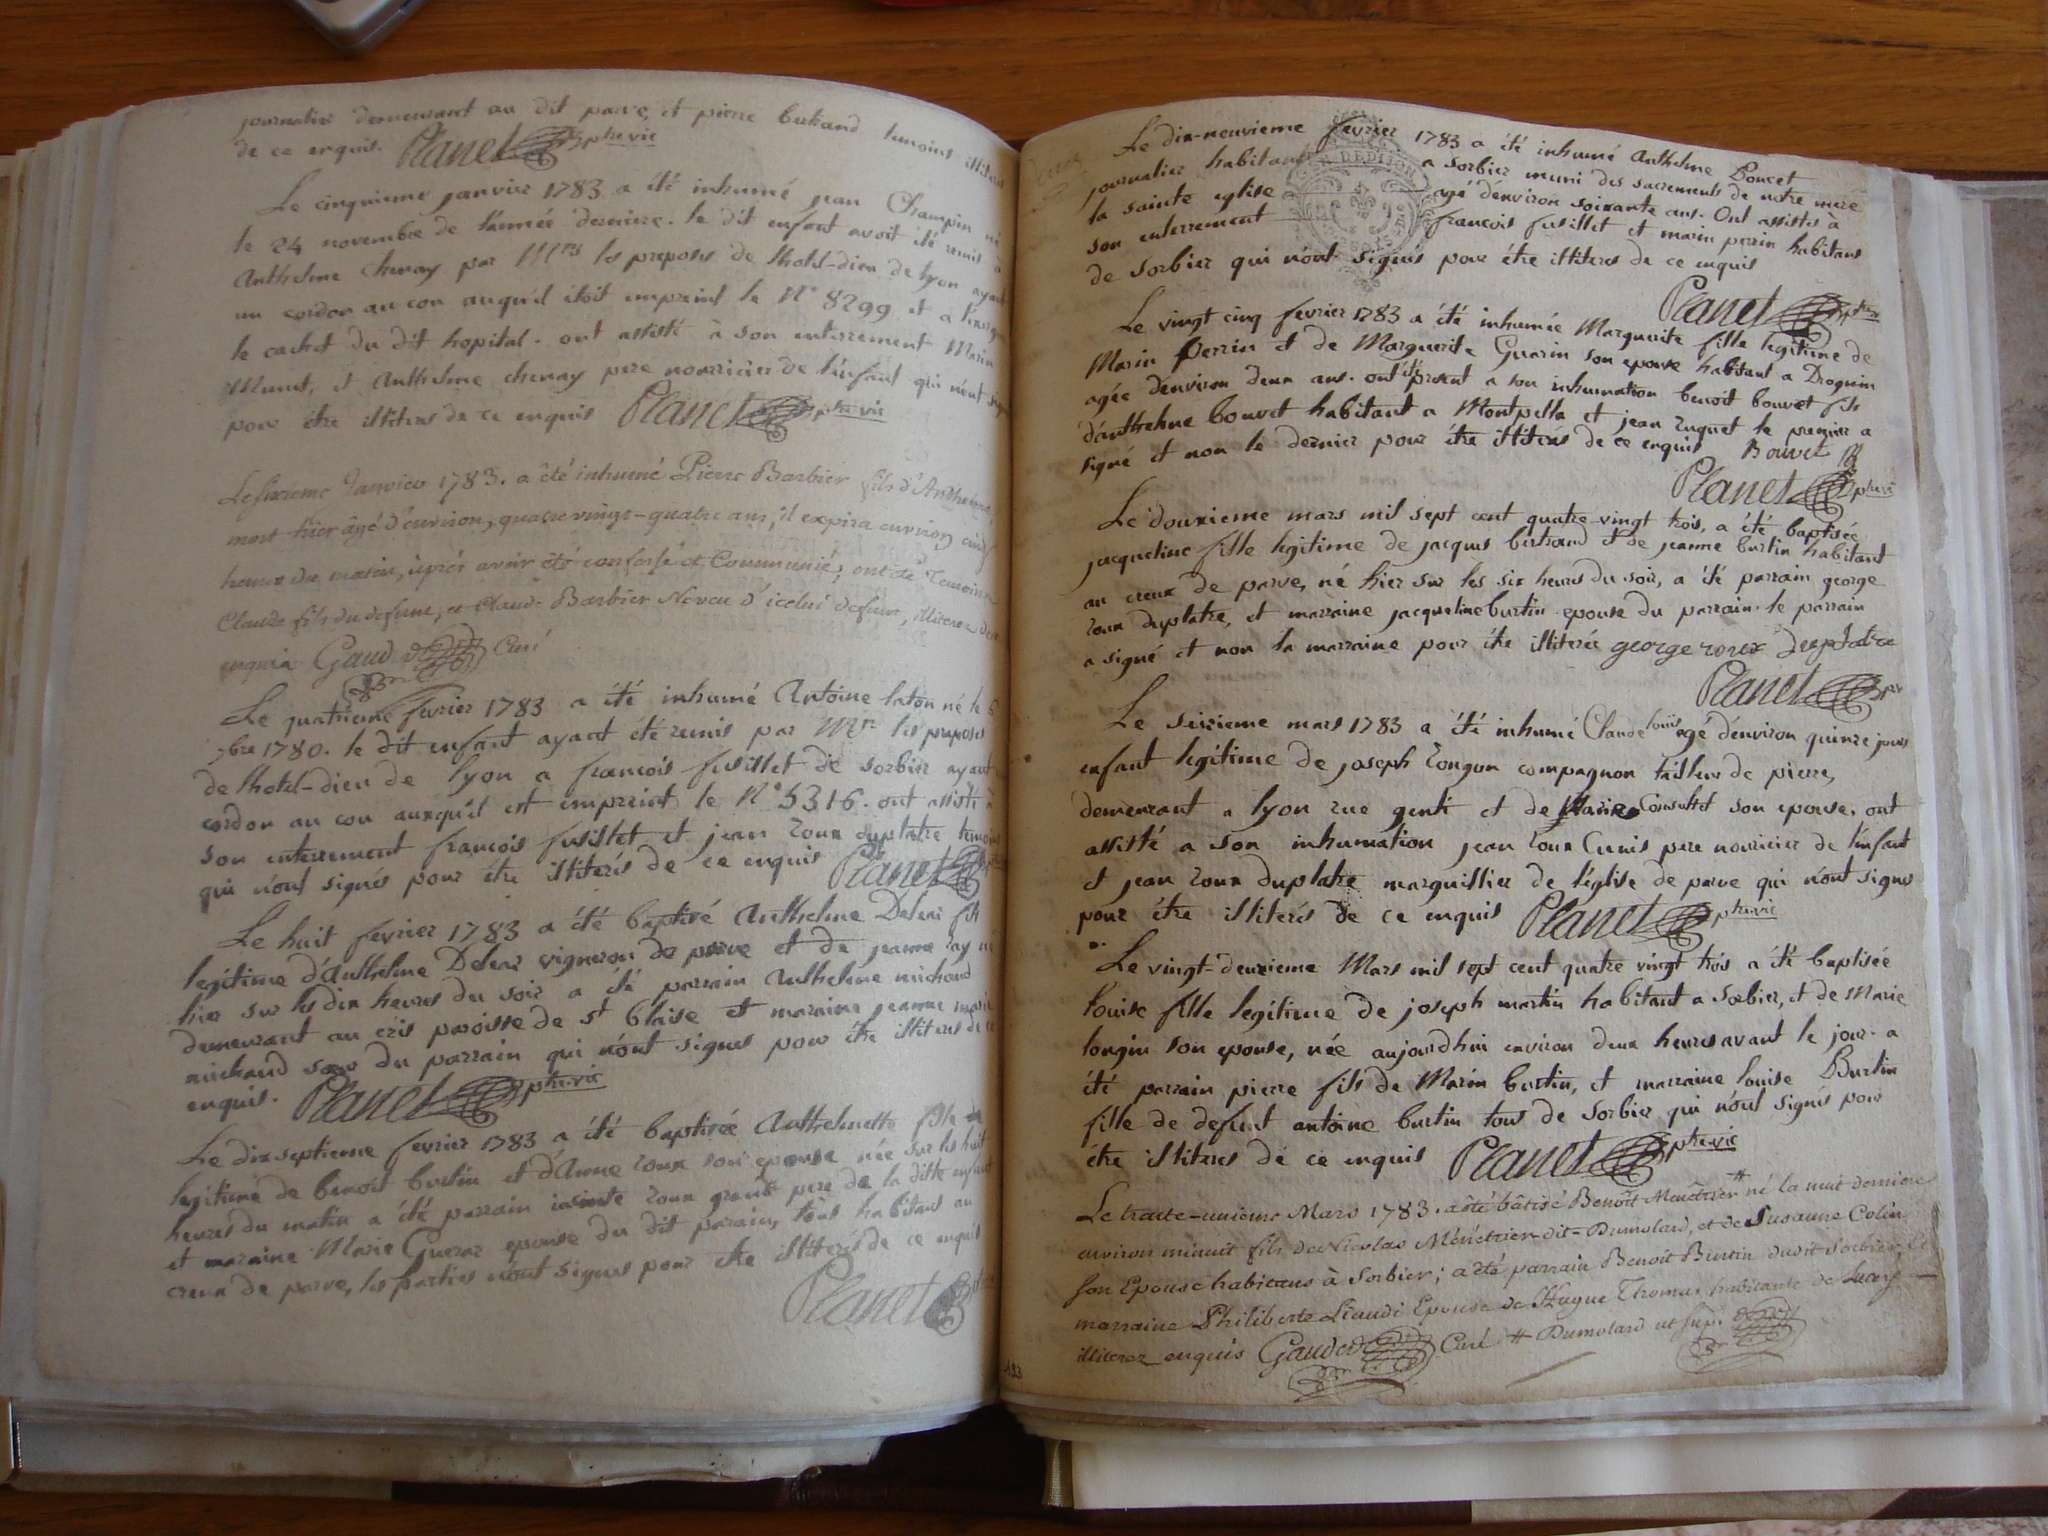 journalier demeurant au dit parve, et pierre butrand temoins illiteres
de ce enquis. Planet ptre vic
Le cinquieme janvier 1783 a été inhumé jean Champin né
le 24 novembre de l'année derniere. le dit enfant avoit été remis à
Anthelme Chenay par Mrs les preposés de l'hotel-dieu de lyon ayant
un cordon au cou auquel étoit empreint le N° 8299 et a
le cachet du dit hopital. ont assisté à son enterrement Marin
et Anthelme chenay pere nourricier de l'enfant qui n'ont signé
pour être illiteres de ce enquis Planet ptre vic
Le sixieme Janvier 1783. a été inhumé Pierre Barbier fils d'Anthelme,
mort hier âgé d'environ, quatre vingt-quatre ans, il expira environ cinq
heures du matin, après avoir été confessé et Communié; ont été Temoins
Claude fils du defunt, et Claude Barbier Neveu d'icelui defunt, illiterez de
enquis Gaudet Curé
Le quatrieme fevrier 1783 a été inhumé Antoine laton né le 6
7bre 1780. le dit enfant ayant été remis par Mrs les preposés
de l'hotel-dieu de lyon a francois fusillet de sorbier ayant
cordon au cou auxquil est empreint le N° 5316. ont assisté à
son enterrement francois fusillet et jean roux duplatre temoins
qui n'ont signés pour être illiterés de ce enquis Planet
Le huit fevrier 1783 a été baptisé Anthelme fils
legitime d'Anthelme vigneron de parve et de jeanne ray né
hier sur les dix heures du soir a été parrain Anthelme michaud
demeurant au cris paroisse de st blaise et maraine jeanne marie
michaud soeur du parrain qui n'ont signés pour être illiteres de ce
enquis. Planet ptre vic
Le dix septieme fevrier 1783 a été baptisée Anthelmette fille
legitime de benoit burtin et d'Anne roux son epouse née sur les huit
heures du matin a été parrain roux grand pere de la ditte enfant
et maraine Marie Guerar epouse du dit parain, tous habitans au
creux de parve, les parties n'ont signés pour être illiterés de ce enquis
Planet
Le dix-neuvieme fevrier 1783 a été inhumé Anthelme Poncet
journalier habitant a sorbier muni des sacrements de notre mere
la sainte eglise agé d'environ soixante ans. Ont assistés à
son enterrement francois fusillet et marin perrin habitans
de sorbier qui n'ont signés pour être illiteres de ce enquis
Planet ptre vic
Le vingt cinq fevrier 1783 a été inhumée Marguerite fille legitime de
Marin Perrin et de Marguerite Guerin son epouse habitant a Drognin
agée d'environ deux ans. ont été present a son inhumation benoit bouvet fils
d'anthelme bouvet habitant a Montpella et jean le premier a
signé et non le dernier pour être illiterés de ce enquis Bouvet
Planet ptre vi
Le douxieme mars mil sept cent quatre-vingt trois, a été baptisée
jacqueline fille legitime de jacques bertrand et de jeanne burtin habitant
au creux de parve, né hier sur les six heures du soir, a été parrain george
roux duplatre, et marraine jacqueline burtin epouse du parrain. le parrain
a signé et non la marraine pour être illiterée george roux Duplatre
Planet
Le seixieme mars 1783 a été inhumé Claude louis agé d'environ quinze jours
enfant legitime de joseph compagnon tailleur de pierre,
demeurant a lyon rue genti et de Marie Consultet son epouse. ont
assitté a son inhumation jean roux Cunis pere nouricier de l'enfant
et jean roux duplatre marguillier de l'église de parve qui n'ont signé
pour être illiterés de ce enquis Planet ptre vic
Le vingt-deuxieme Mars mil sept cent quatre vingt trois a été baptisée
louise fille legitime de joseph martin habitant a sorbier, et de Marie
longin son epouse, née aujourdhui environ deux heures avant le jour. a
été parrain pierre fils de Marin burtin, et marraine louise Burtin
fille de defunt antoine burtin tous de sorbier qui n'ont signés pour
être illiteres de ce enquis Planet ptre vic
Le trente-unieme Mars 1783. a été bâtisé Benoît Menêtrier # né la nuit derniere
environ minuit fils de Nicolas Ménétrier-dit-Dumolard, et de Susanne Colin
son Epouse habitans à Sorbier; a été parrain Benoit Burtin dudit Sorbier, et
marraine Philiberte Liaudi Epouse de Hugue Thomas habitante de
illiterez enquis Gaudet Curé # Dumolard ut sup.
133